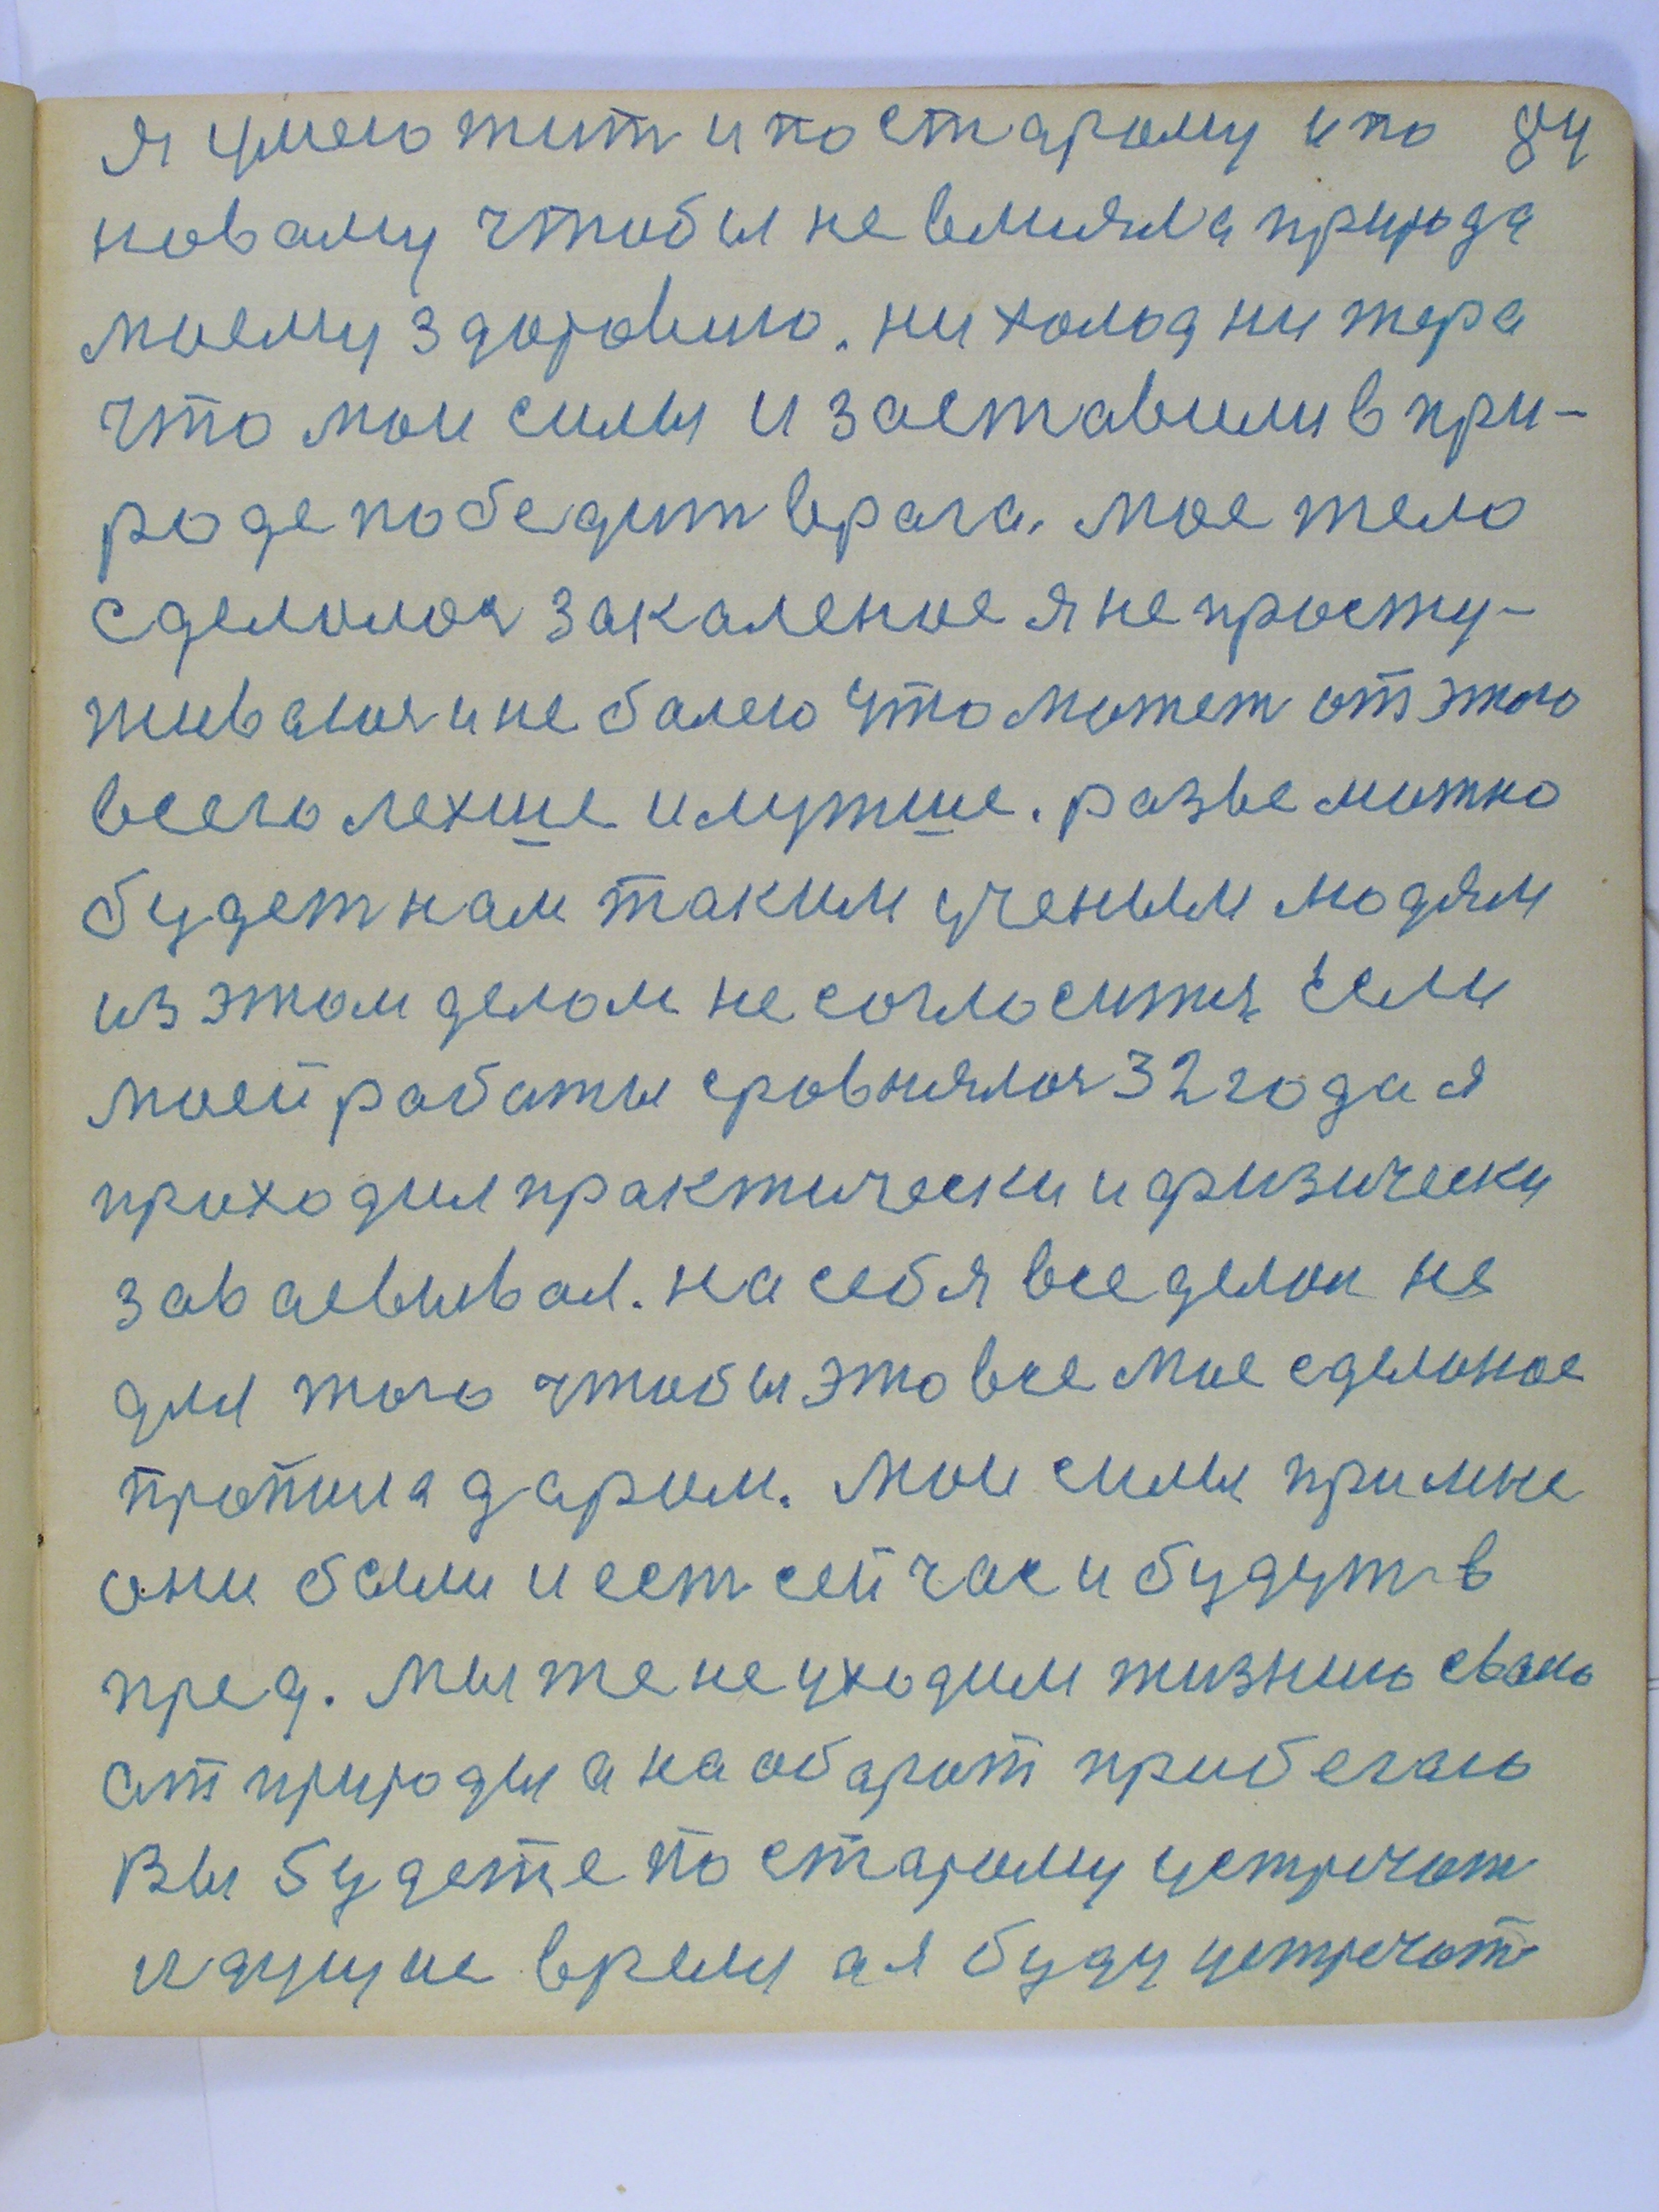 я умею жит и по старому и по 84
новаму чтобы не влияла природа
моему здоровию. ни холод ни жара
что мои силы и заставили в при-
роде победит врага. мое тело
сделолося закаленое я не просту-
живаюся и не балею что может от этого
всего лехше и лутше. разве можно
будет нам таким ученым людям
из этом делом не согласится. Если
моей работы сровнялося 32 года я
проходил практически и физически
заваевывал. на себя все делал не
для того чтобы это все мое сделоное
пропала даром. Мои силы при мне
они были и ест сейчас и будут в
пред. Мы же не уходим жизнию сваею
от природы а на обарот прибегаю
Вы будете по старому устречат
идущие время а я буду устречат